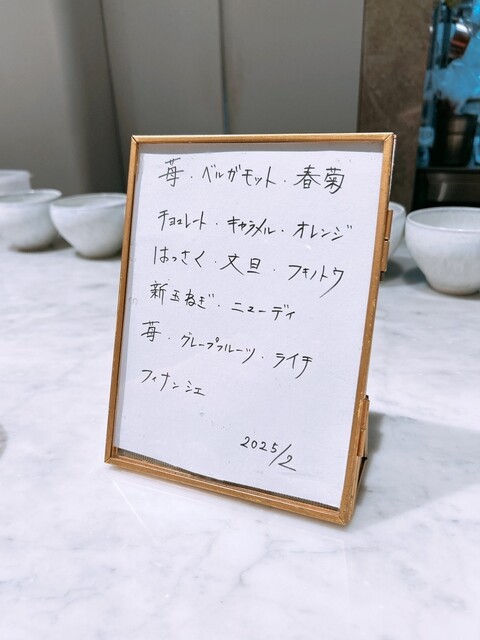 苺・ベルガモット・春菊
チョコレート・キャラメル・オレンジ
はっさく・文旦・フキノトウ
新玉ねぎ・ニューディ
苺・グレープフルーツ・ライチ
フィナンシェ
2025/2